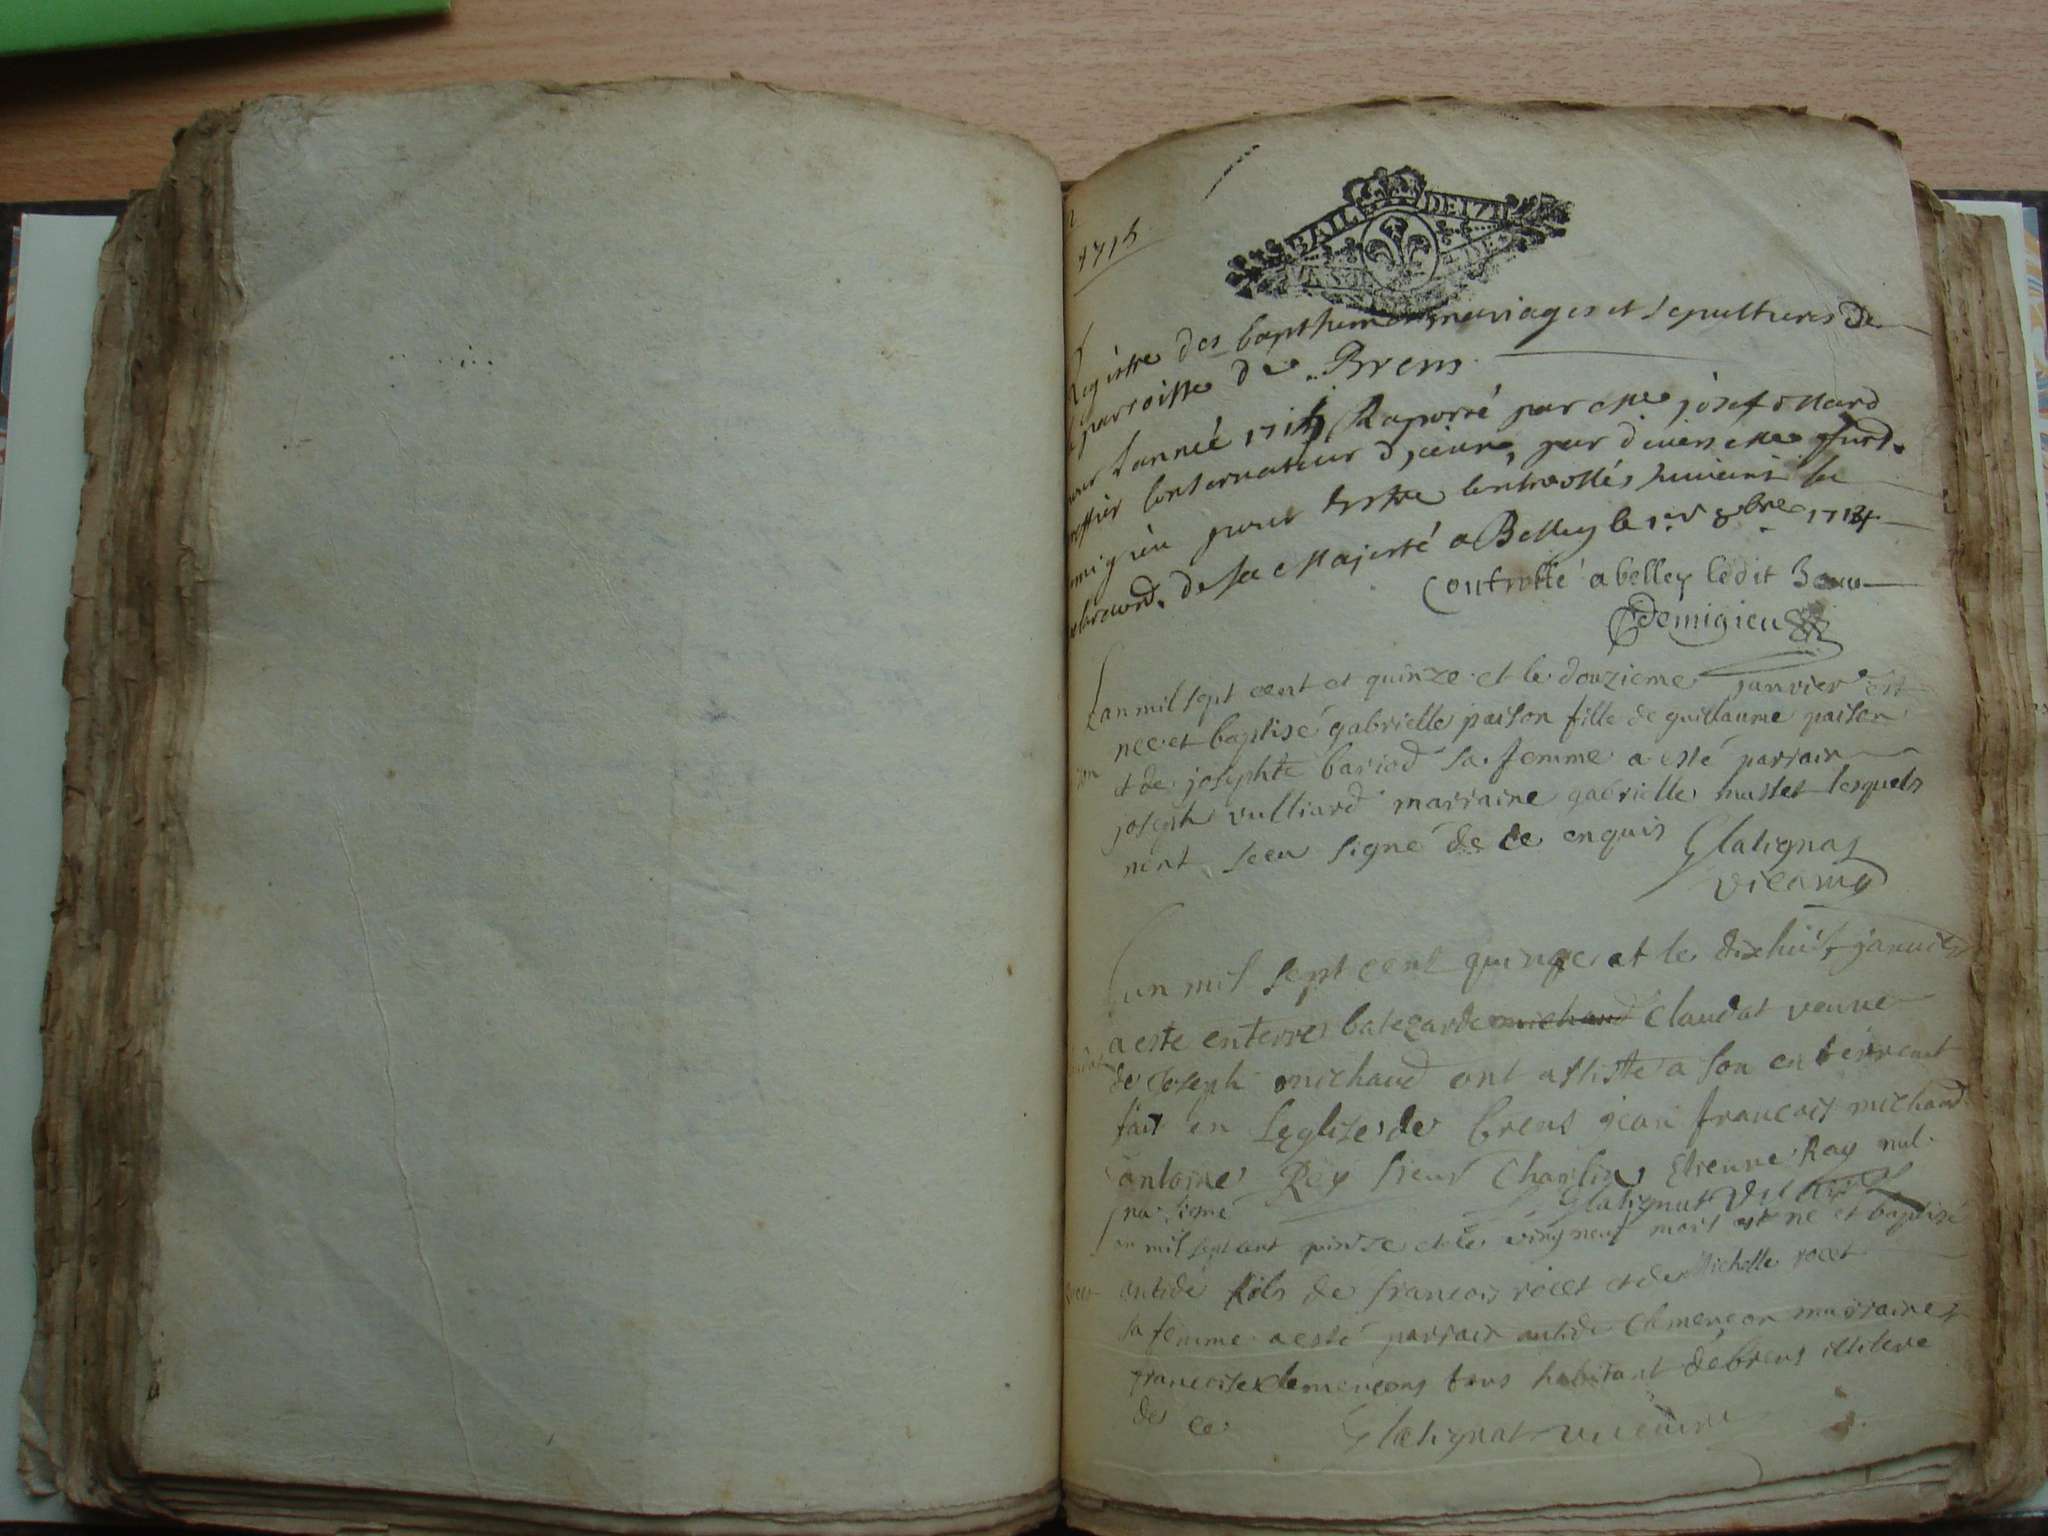 1715
BAIL DE
Registre des bapthemes mariages et sepultures de
parroisse de Brens
lannée 1715 Raporré par Me josef
Conservateur par
migieu pour estre Controllés suivant la
de sa Majesté a Belley le 1er 8bre 1714
Controllé a belley ledit Jour
Demigieu
Lan mil sept cent et quinze et le douzieme janvier est
nee et baptisé gabrielle paison fille de guillaume paison
et de josephte bariod sa femme a esté parrain
joseph vulliard marraine gabrielle mastet lesquels
nont sceu signé de ce enquis Glatignas
vicaire
Lan mil sept cent quinze et le dixhuit janvier
a este enterre michaud Claudat veuve
de Joseph michaud ont assiste a son enterrement
fait en Leglise de brens jean francois michaud
antoine Rey sieur Charlin Etienne Ray nul
na signé Glatignat vicaire
Lan mil sept cent quinze et le vingneuf mars est ne et baptisé
antide fils de francois rocet et de Michelle rocet
sa femme a esté parrain antide Clemencon marraine
francoise Clemencons tous habitant de brens illitere
de ce
Glatignat vicaire